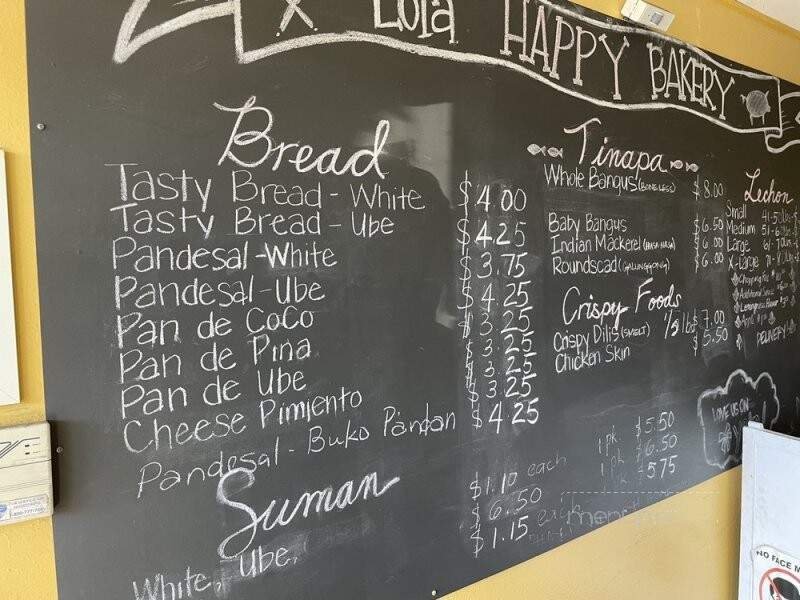 X. Lola HAPPY BAKERY
Bread
Tasty Bread - White $4.00
Tasty Bread - Ube $4.25
Pandesal - White $3.75
Pandesal - Ube $4.25
Pan de Coco $3.25
Pan de Pina $3.25
Pan de Ube $3.25
Cheese Pimiento $4.25
Pandesal - Buko Pandan
Suman
$1.10 each
$6.50
$1.15
White, Ube,
Tinapa
Whole Bangus (BONELESS) $8.00
Baby Bangus $6.50
Indian Mackerel $6.00
Roundscad (GALUNGGONG) $6.00
Crispy Foods
Crispy Dilis (SMELT) 1/2 lbs $7.00
Chicken Skin $5.50
1 pk $5.50
1 pk $6.50
1 pk 5.75
Lechon
Small
Medium
Large
X-Large
DELIVERY
LOVE US ON
NO FACE M